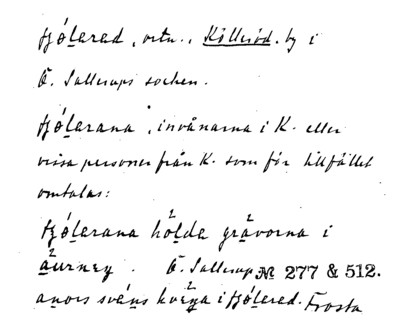 tjólerad, ortn., Källeröd. by i
Ö. Sallerups socken.
tjólerana, invånarna i K. eller
vissa personer från K. som för tillfället
omtalas:
tjólerana hölde grávorna i
Ö. Sallerup № 277 & 512.
i tjólered. Frosta